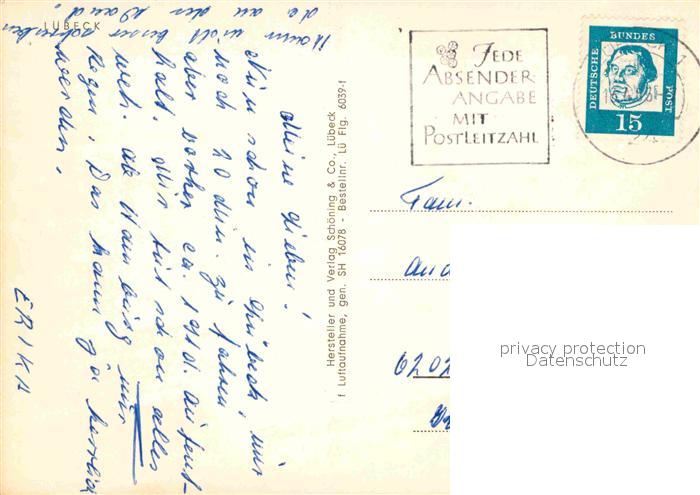 LÜBECK
Meine Lieben!
Nun schon in Lübeck, nur
noch 20 Min. zu fahren
aber vorher ca. 1 Std. Aufent-
halt. Mir tut schon alles
weh. Ab Hamburg nur
Regen. Das kann ja herrlich
werden.
Kann nicht besser schreiben
da an der Wand.
ERIKA
Hersteller und Verlag Schöning & Co., Lübeck
f Luftaufnahme, gen. SH 16078 - Bestellnr. Lü Flg. 6039-f
JEDE
ABSENDER-
ANGABE
MIT
POSTLEITZAHL
DEUTSCHE BUNDESPOST
15
Fam.
620
privacy protection
Datenschutz